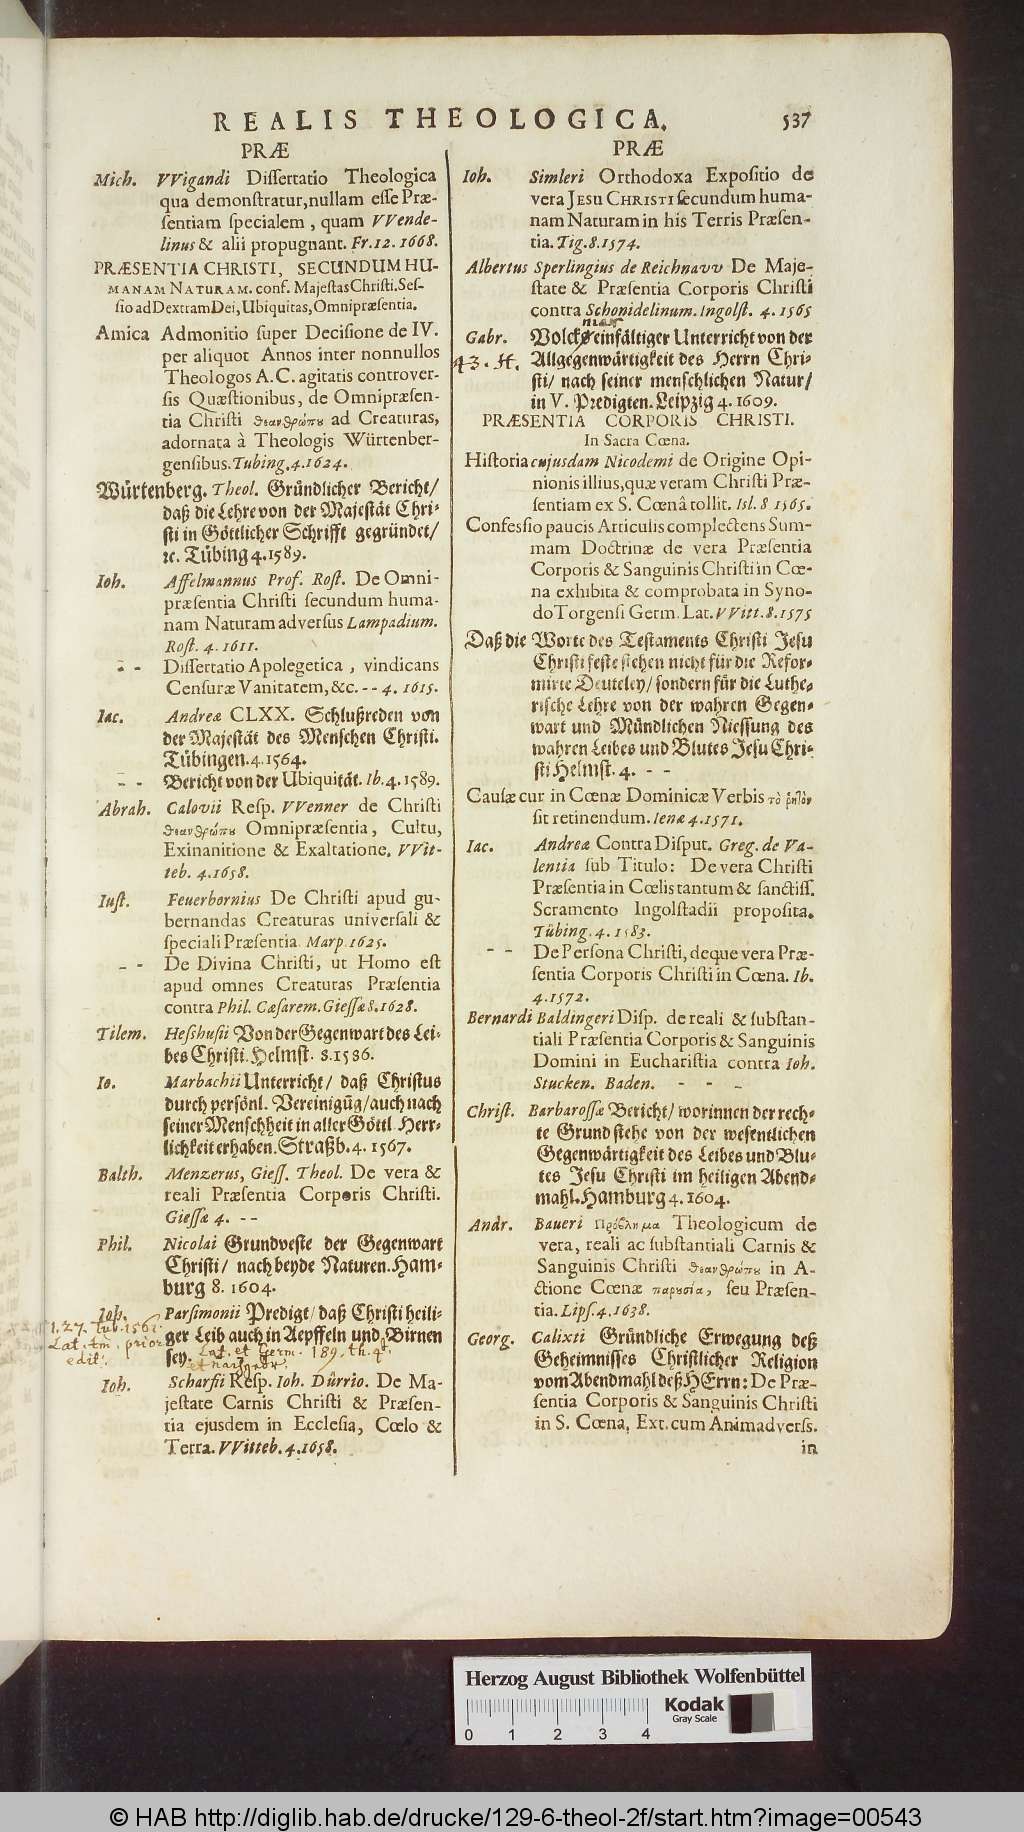 REALIS THEOLOGICA. 537
PRÆ
Mich. VVigandi Dissertatio Theologica
qua demonstratur, nullam esse Præ-
sentiam specialem, quam VVende-
linus & alii propugnant. Fr. 12. 1668.
PRÆSENTIA CHRISTI, SECUNDUM HU-
MANAM NATURAM. conf. Majestas Christi. Ses-
sio ad Dextram Dei, Ubiquitas, Omnipræsentia.
Amica Admonitio super Decisione de IV.
per aliquot Annos inter nonnullos
Theologos A. C. agitatis controver-
sis Quæstionibus, de Omnipræsen-
tia Christi θεανθρώπου ad Creaturas,
adornata à Theologis Würtenber-
gensibus. Tubing. 4. 1624.
Würtenberg. Theol. Gründlicher Bericht/
daß die Lehre von der Majestät Chri-
sti in Göttlicher Schrifft gegründet/
ꝛc. Tübing 4. 1589.
Ioh. Affelmannus Prof. Rost. De Omni-
præsentia Christi secundum huma-
nam Naturam adversus Lampadium.
Rost. 4. 1611.
- - Dissertatio Apolegetica, vindicans
Censuræ Vanitatem, &c. - - 4. 1615.
Iac. Andreæ CLXX. Schlußreden von
der Majestät des Menschen Christi.
Tübingen. 4. 1564.
- - Bericht von der Ubiquität. Ib. 4. 1589.
Abrah. Calovii Resp. VVenner de Christi
θεανθρώπου Omnipræsentia, Cultu,
Exinanitione & Exaltatione. VVit-
teb. 4. 1658.
Iust. Feuerbornius De Christi apud gu-
bernandas Creaturas universali &
speciali Præsentia Marp. 1625.
- - De Divina Christi, ut Homo est
apud omnes Creaturas Præsentia
contra Phil. Cæsarem. Giessæ 8. 1628.
Tilem. Heshusii Von der Gegenwart des Lei-
bes Christi. Helmst. 8. 1586.
Io. Marbachii Unterricht/ daß Christus
durch persönl. Vereinigũg/ auch nach
seiner Menschheit in aller Göttl. Herr-
lichkeit erhaben. Straßb. 4. 1567.
Balth. Menzerus, Giess. Theol. De vera &
reali Præsentia Corporis Christi.
Giessæ 4. - -
Phil. Nicolai Grundveste der Gegenwart
Christi/ nach beyde Naturen. Ham-
burg 8. 1604.
Ioh. Parsimonii Predigt/ daß Christi heili-
ger Leib auch in Aepffeln und Birnen
sey. Lat. et Germ. 189. th. 4°.
1.27. Tub. 1561.
Lat. tm. prior
edit.
Ioh. Scharfii Resp. Ioh. Dürrio. De Ma-
jestate Carnis Christi & Præsen-
tia ejusdem in Ecclesia, Cœlo &
Terra. VVitteb. 4. 1658.
PRÆ
Ioh. Simleri Orthodoxa Expositio de
vera JESU CHRISTI secundum huma-
nam Naturam in his Terris Præsen-
tia. Tig. 8. 1574.
Albertus Sperlingius de Reichnavv De Maje-
state & Præsentia Corporis Christi
contra Schonidelinum. Ingolst. 4. 1565
Gabr. Volcks einfältiger Unterricht von der
43. H. Allgegenwärtigkeit des Herrn Chri-
sti/ nach seiner menschlichen Natur/
in V. Predigten. Leipzig 4. 1609.
PRÆSENTIA CORPORIS CHRISTI.
In Sacra Cœna.
Historia cujusdam Nicodemi de Origine Opi-
nionis illius, quæ veram Christi Præ-
sentiam ex S. Cœnâ tollit. Isl. 8 1565.
Confessio paucis Articulis complectens Sum-
mam Doctrinæ de vera Præsentia
Corporis & Sanguinis Christi in Cœ-
na exhibita & comprobata in Syno-
do Torgensi Germ. Lat. VVitt. 8. 1575
Daß die Worte des Testaments Christi Jesu
Christi feste stehen nicht für die Refor-
mirte Deuteley/ sondern für die Luthe-
rische Lehre von der wahren Gegen-
wart und Mündlichen Niessung des
wahren Leibes und Blutes Jesu Chri-
sti Helmst. 4. - -
Causæ cur in Cœnæ Dominicæ Verbis τὸ ῥητὸν
sit retinendum. Ienæ 4. 1571.
Iac. Andreæ Contra Disput. Greg. de Va-
lentia sub Titulo: De vera Christi
Præsentia in Cœlis tantum & sanctiss.
Scramento Ingolstadii proposita.
Tübing. 4. 1583.
- - De Persona Christi, deque vera Præ-
sentia Corporis Christi in Cœna. Ib.
4. 1572.
Bernardi Baldingeri Disp. de reali & substan-
tiali Præsentia Corporis & Sanguinis
Domini in Eucharistia contra Ioh.
Stucken. Baden. - - -
Christ. Barbarossæ Bericht/ worinnen der rech-
te Grund stehe von der wesentlichen
Gegenwärtigkeit des Leibes und Blu-
tes Jesu Christi im heiligen Abend-
mahl. Hamburg 4. 1604.
Andr. Baueri Πρόβλημα Theologicum de
vera, reali ac substantiali Carnis &
Sanguinis Christi θεανθρώπου in A-
ctione Cœnæ παρουσίᾳ, seu Præsen-
tia. Lips. 4. 1638.
Georg. Calixti Gründliche Erwegung deß
Geheimnisses Christlicher Religion
vom Abendmahl deß HErrn: De Præ-
sentia Corporis & Sanguinis Christi
in S. Cœna, Ext. cum Animadverss.
in
Herzog August Bibliothek Wolfenbüttel
0 1 2 3 4
Kodak
Gray Scale
© HAB http://diglib.hab.de/drucke/129-6-theol-2f/start.htm?image=00543